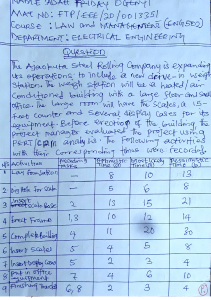 NAME: ADAH FRIDAY OGENYI
MAT NO: TTP/EEE/20/0013351
COURSE: LAW and MANAGEMENT (ENG502)
DEPARTMENT: ELECTRICAL ENGINEERING
QUESTION
The Ajaokuta Steel Rolling Company is expanding
its operations to include a new drive-in weigh
Station. The weigh station will be a heated/air
Conditioned building with a large floor and small
office. The large room will have the scales, a 15-
foot counter and several display cases for its
equipment. Before erection of the building, the
project manager evaluated the project using
PERT/CPM analysis. The following activities
with their corresponding times were recorded
Activities
Optimistic time
Most likely time
Pessimistic time
1 Lay foundation - 8 10 13
2 5 6 8
3 2 13 15 21
4 erect frame 1,3 10 12 14
5 Complete building 4 11 20 30
6 Insert scales 5 4 5 8
7 Insert display cases 5 2 3 4
8 Put in office equipment 7 4 6 10
9 Finishing touches 6,8 2 3 4